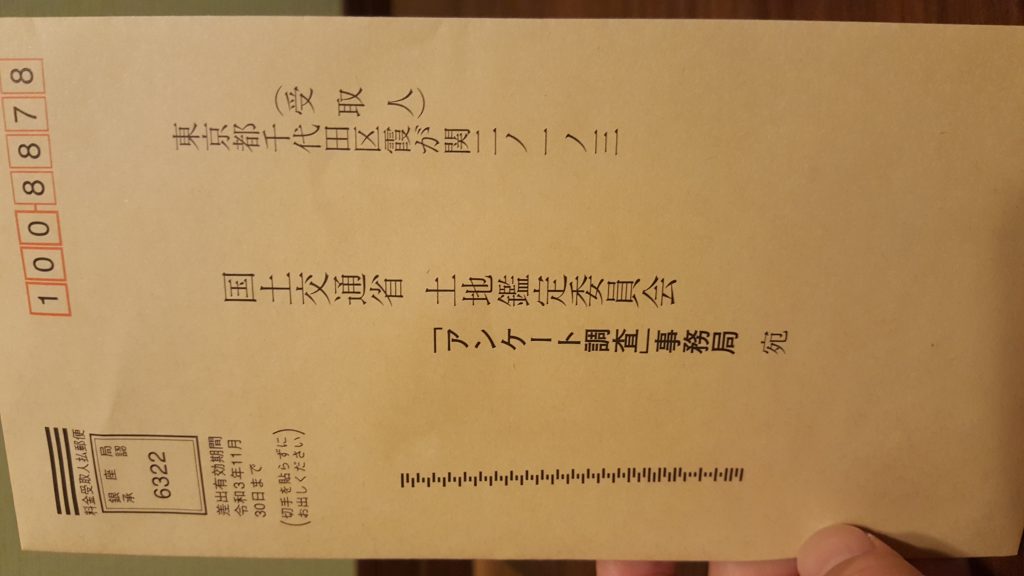 1008878
(受取人)
東京都千代田区霞が関二ノ一ノ三
国土交通省 土地鑑定委員会
「アンケート調査」事務局 宛
料金受取人払郵便
銀座局
承認
6322
差出有効期間
令和3年11月
30日まで
(切手を貼らずに
お出しください)